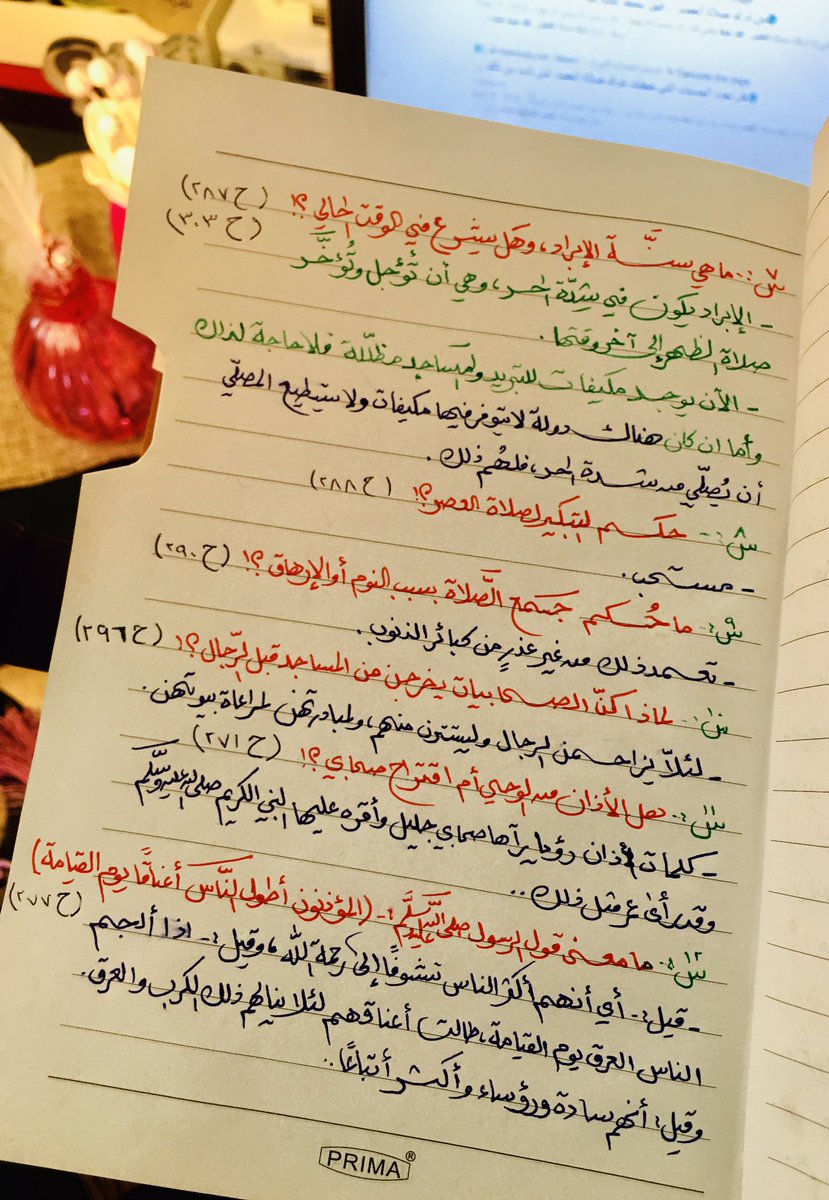 س٧:- ما هي سنَّة الإبراد، وهل يشرع في الوقت الحالي؟! (ح ٢٨٧)
(ح ٣٠٣)
- الإبراد يكون في شِدَّة الحر، وهي أن تُؤجل وتُؤخَّر
صلاة الظهر إلى آخر وقتها.
- الآن يوجد مكيفات للتبريد والمساجد مظلّلة فلا حاجة لذلك
وأما إن كان هناك دولة لا يتوفر فيها مكيفات ولا يستطيع المصلّي
أن يُصلّي من شدة الحر، فلهُم ذلك.
س٨:- حكم التبكير لصلاة العصر؟! (ح ٢٨٨)
- مستحب.
س٩:- ما حُكم جمع الصَّلاة بسبب النوم أو الإرهاق؟! (ح ٢٩٠)
- تعمد ذلك من غير عذرٍ من كبائر الذنوب.
س١٠:- لماذا كنَّ الصحابيات يخرجن من المساجد قبل الرّجال؟! (ح ٢٩٦)
- لئلاّ يزاحمن الرجال وليستترن منهم، ولمبادرتهن لمراعاة بيوتهن.
س١١:- هل الأذان من الوحي أم اقتراح صحابي؟! (ح ٢٧١)
- كلمات الأذان رؤيا يرآها صحابي جليل وأقره عليها النبي الكريم صلى الله عليه وسلم
وقد رأى عمر مثل ذلك..
س١٢:- ما معنى قول الرسول صلى الله عليه وسلم:- (المؤذنون أطول النَّاس أعناقًا يوم القيامة)
(ح ٢٧٧)
- قيل:- أي أنهم أكثر الناس تشوفًا إلى رحمة الله، وقيل:- اذا ألجم
الناس العرق يوم القيامة، طالت أعناقهم لئلا ينالهم ذلك الكرب والعرق.
وقيل: أنهم سادة ورؤساء وأكثر أتباعًا..
PRIMA®